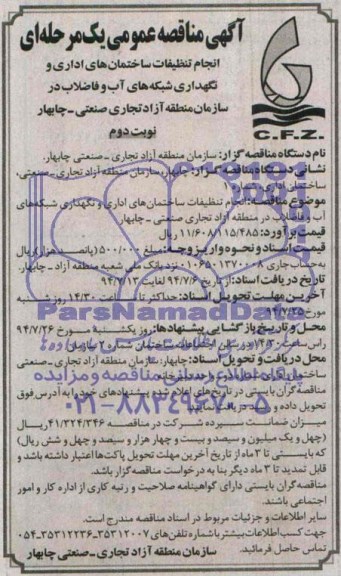 آگهی مناقصه عمومی یک مرحله‌ای
انجام تنظیفات ساختمان‌های اداری و
نگهداری شبکه‌های آب و فاضلاب در
سازمان منطقه آزاد تجاری صنعتی - چابهار
نوبت دوم
C.F.Z.
نام دستگاه مناقصه گزار: سازمان منطقه آزاد تجاری - صنعتی چابهار.
نشانی دستگاه مناقصه گزار: چابهار، سازمان منطقه آزاد تجاری - صنعتی،
ساختمان اداری شماره
موضوع مناقصه: انجام تنظیفات ساختمان‌های اداری و نگهداری شبکه‌های
آب و فاضلاب در منطقه آزاد تجاری صنعتی - چابهار
قیمت برآورد: ۱۱/۶۰۸/۱۱۵/۴۸۵ ریال
قیمت اسناد و نحوه واریز وجه: مبلغ ۵۰۰/۰۰۰ (پانصد هزار) ریال
به حساب جاری ۰۱۰۶۵۰۱۳۷۰۰۰۸ نزد بانک ملی شعبه منطقه آزاد - چابهار.
تاریخ دریافت اسناد: از تاریخ ۹۴/۷/۶ لغایت ۹۴/۷/۱۳
آخرین مهلت تحویل اسناد: حداکثر تا ساعت ۱۴/۳۰ روز شنبه
مورخ ۹۴/۷/۲۵
ParsNamadData
محل و تاریخ بازگشایی پیشنهادها: روز یکشنبه مورخ ۹۴/۷/۲۶
راس ساعت ۱۴/۳۰ در سالن اجتماعات ساختمان شماره ۲ سازمان
محل دریافت و تحویل اسناد: چابهار، سازمان منطقه آزاد تجاری - صنعتی
ساختمان اداری شماره
مناقصه گران بایستی در تاریخ‌های اعلام شده پیشنهادهای خود را به آدرس فوق
تحویل داده و رسید دریافت نمایند
۰۲۱-۸۸۳۴۹۶۷۰-۵
میزان ضمانت سپرده شرکت در مناقصه ۴۱/۳۲۴/۳۴۶ ریال
(چهل و یک میلیون و سیصد و بیست و چهار هزار و سیصد و چهل و شش ریال)
که بایستی تا ۳ ماه از تاریخ آخرین مهلت تحویل پاکت‌ها اعتبار داشته باشد و
قابل تمدید تا ۳ ماه دیگر بنا به درخواست مناقصه گزار باشد.
مناقصه گران بایستی دارای گواهینامه صلاحیت و رتبه کاری از اداره کار و امور
اجتماعی باشند.
سایر اطلاعات و جزئیات مربوط در اسناد مناقصه مندرج است.
جهت کسب اطلاعات بیشتر با شماره تلفن‌های ۳۵۳۱۲۰۰۷-۳۵۳۱۲۲۳۶-۰۵۴
تماس حاصل فرمائید.
سازمان منطقه آزاد تجاری - صنعتی چابهار